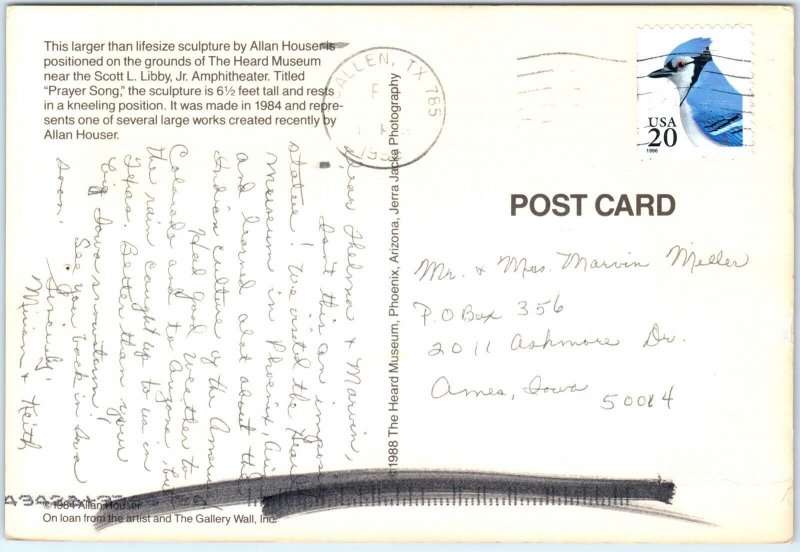 This larger than lifesize sculpture by Allan Houser is
positioned on the grounds of The Heard Museum
near the Scott L. Libby, Jr. Amphitheater. Titled
“Prayer Song,” the sculpture is 6½ feet tall and rests
in a kneeling position. It was made in 1984 and repre-
sents one of several large works created recently by
Allan Houser.
ALLEN, TX 785
USA
20
1996
POST CARD
Mr. & Mrs. Marvin Miller
P.O Box 356
2011 Ashmore Dr.
Ames, Iowa
50014
©1988 The Heard Museum, Phoenix, Arizona, Jerra Jacka Photography
Dear Thelma & Marvin,
Isn't this an impos
statue! We visited the Hear
museum in Phoenix, Ariz
and learned alot about the
Indian culture of the Ameri
Had good weather to
Colorado and to Arizona but
the rain caught up to us in
Texas. Better than your
big Iowa snowstorm!
See you back in Iowa
soon.
Sincerely,
Miriam & Keith
© 1984 Allan Houser
On loan from the artist and The Gallery Wall, Inc.